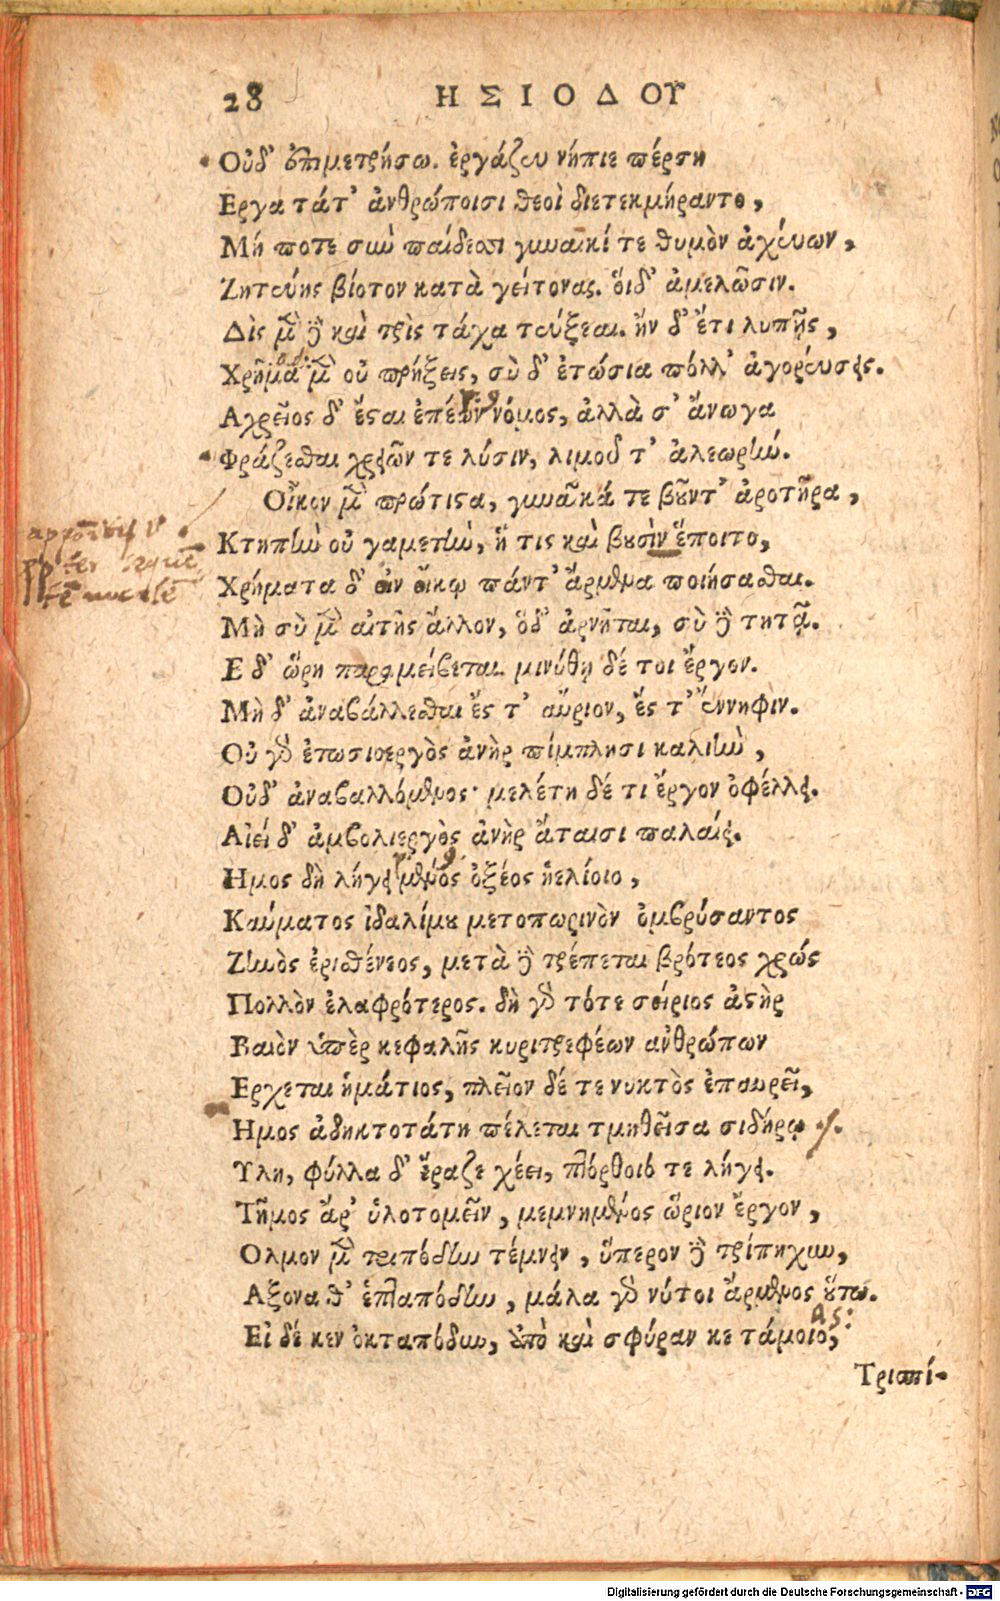 28 ΗΣΙΟΔΟΥ
Οὐδ' ἐπιμετρήσω. ἐργάζευ νήπιε πέρση
Εργα τάτ' ἀνθρώποισι θεοὶ διετεκμήραντο,
Μή ποτε σὺν παίδεσσι γυναικί τε θυμὸν ἀχεύων,
Ζητεύης βίοτον κατὰ γείτονας. ὅιδ' ἀμελῶσιν.
Δὶς μὲν γὰρ καὶ τρὶς τάχα τεύξεαι. ἢν δ' ἔτι λυπῇς,
Χρῆμα μὲν οὐ πρήξεις, σὺ δ' ἐτώσια πόλλ' ἀγορεύσεις.
Αχρεῖος δ' ἔσαι ἐπέων νόμος, ἀλλὰ σ' ἄνωγα
Φράζεσθαι χρειῶν τε λύσιν, λιμοῦ τ' ἀλεωρήν.
Οἶκον μὲν πρώτιστα, γυναῖκά τε βοῦντ' ἀροτῆρα,
Κτητὴν οὐ γαμετὴν, ἥ τις καὶ βουσὶν ἕποιτο,
Χρήματα δ' ἐν οἴκῳ πάντ' ἄρμενα ποιήσασθαι.
Μὴ σὺ μὲν αἰτῇς ἄλλον, ὅδ' ἀρνῆται, σὺ δὲ τητᾷ.
Ε δ' ὥρη παραμείβεται. μινύθῃ δέ τοι ἔργον.
Μὴ δ' ἀναβάλλεσθαι ἔς τ' αὔριον, ἔς τ' ἔννηφιν.
Οὐ γὰρ ἐτωσιοεργὸς ἀνὴρ πίμπλησι καλιὴν,
Οὐδ' ἀναβαλλόμενος· μελέτη δέ τι ἔργον ὀφέλλει.
Αἰεὶ δ' ἀμβολιεργὸς ἀνὴρ ἄταισι παλαίει.
Ημος δὴ λήγει μένος ὀξέος ἠελίοιο,
Καύματος ἰδαλίμου μετοπωρινὸν ὀμβρύσαντος
Ζηνὸς ἐρισθένεος, μετὰ δὲ τρέπεται βρότεος χρώς
Πολλὸν ἐλαφρότερος. δὴ γὰρ τότε σείριος ἀστὴρ
Βαιὸν ὑπὲρ κεφαλῆς κυριτρεφέων ἀνθρώπων
Ερχεται ἠμάτιος, πλεῖον δέ τε νυκτὸς ἐπαυρεῖ,
Ημος ἀδηκτοτάτη πέλεται τμηθεῖσα σιδήρῳ
Υλη, φύλλα δ' ἔραζε χέει, πτόρθοιό τε λήγει.
Τῆμος ἄρ' ὑλοτομεῖν, μεμνημένος ὥριον ἔργον,
Ολμον μὲν τριπόδην τέμνειν, ὕπερον δὲ τρίπηχυν,
Αξονα θ' ἑπταπόδην, μάλα γὰρ νύτοι ἄρμενος οὕτω.
Εἰ δέ κεν ὀκταπόδην, ἀπὸ καὶ σφύραν κε τάμοιο,
Τριπί-
Digitalisierung gefördert durch die Deutsche Forschungsgemeinschaft - DFG